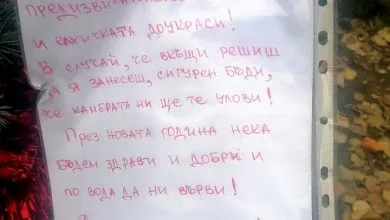 И ЕЛХИЧКАТА ДОУКРАСИ!
В СЛУЧАЙ, ЧЕ ВКЪЩИ РЕШИШ
Я ЗАНЕСЕШ, СИГУРЕН БЪДИ,
ЧЕ КАМЕРАТА НИ ЩЕ ТЕ УЛОВИ!
ПРЕЗ НОВАТА ГОДИНА НЕКА
БЪДЕМ ЗДРАВИ И ДОБРИ И
ПО ВОДА ДА НИ ВЪРВИ!